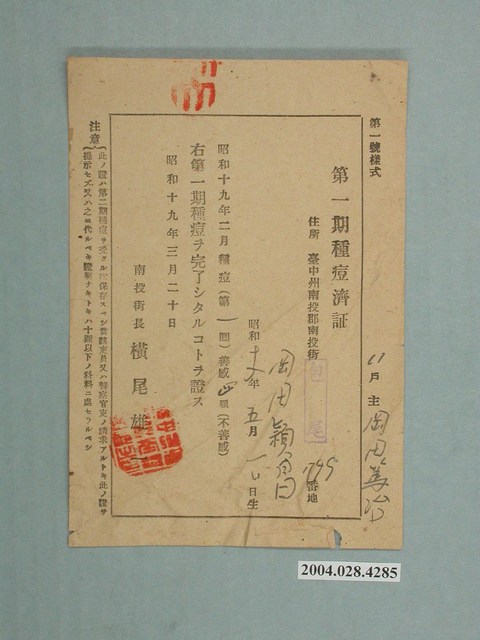 第一號樣式
戶主 岡田
第一期種痘濟証
住所 臺中州南投郡南投街 包尾 795 番地
岡田穎昌
昭和 年 五 月 一 日生
昭和十九年二月種痘(第 一 回)善感 四 顆(不善感)
右第一期種痘ヲ完了シタルコトヲ證ス
昭和十九年三月二十日
南投街長 橫尾雄
注意
此ノ證ハ第二期種痘ヲ受クル迄保存スベシ當該吏員又ハ警察官吏ノ請求アルトキ此ノ證ヲ
提示セズ又ハ之ニ代ルベキ證明ナキトキハ十圓以下ノ科料ニ處セラルベシ
2004.028.4285